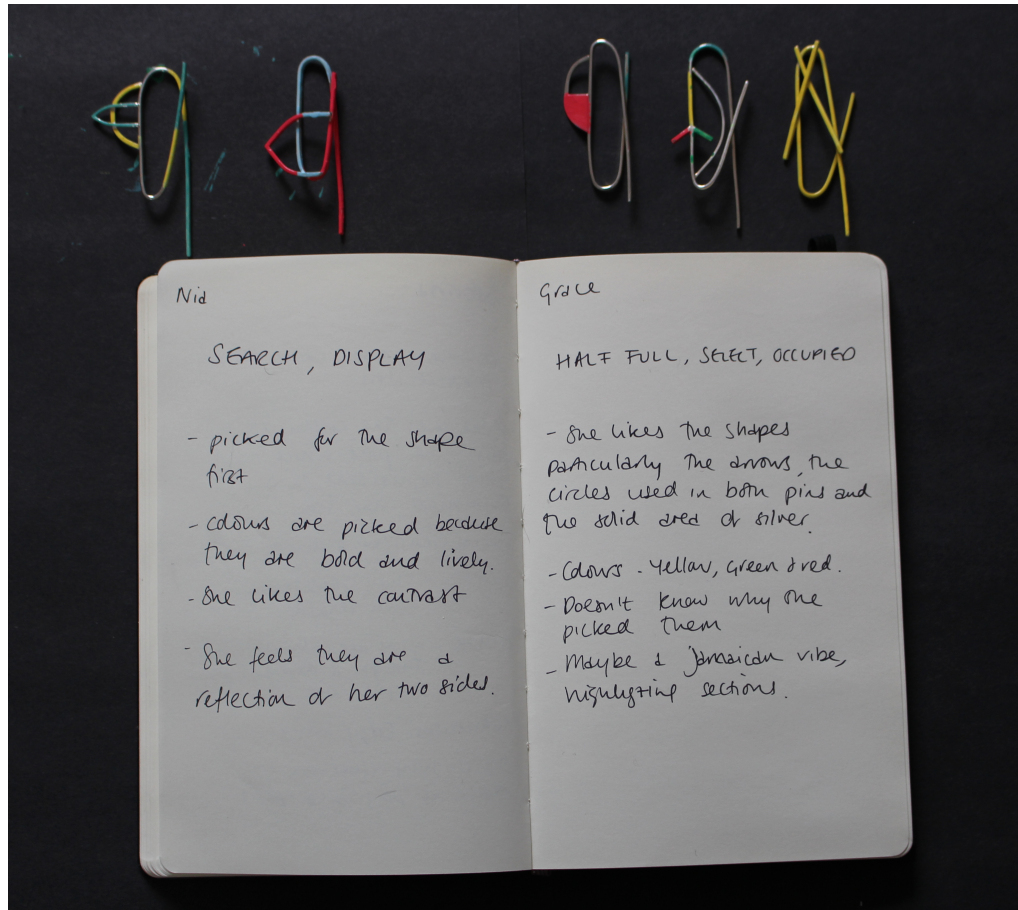 Nia
SEARCH, DISPLAY
- picked for the shape
first
- colours are picked because
they are bold and lively.
- She likes the contrast
- She feels they are a
reflection of her two sides.
Grace
HALF FULL, SELECT, OCCUPIED
- She likes the shapes
particularly the arrows, the
circles used in both pins and
the solid area of silver.
- Colours - Yellow, Green & red.
- Doesn't know why she
picked them
- Maybe a Jamaican vibe,
highlighting sections.